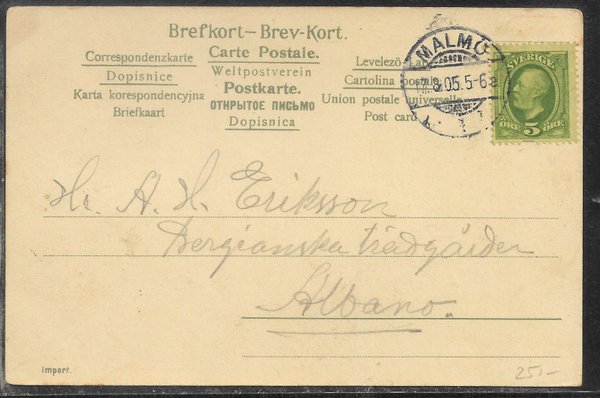 Brefkort—Brev-Kort.
Correspondenzkarte
Carte Postale.
Levelező-La
Dopisnice
Weltpostverein
Cartolina postale
Karta korespondencyjna
Postkarte.
Union postale universelle
Briefkaart
ОТКРЫТОЕ ПИСЬМО
Post card
Dopisnica
MALMÖ
.8.05.5-6
SVERIGE
ÖRE 5 ÖRE
Hr. A. H. Eriksson
Bergianska trädgården
Albano.
Import.
250-